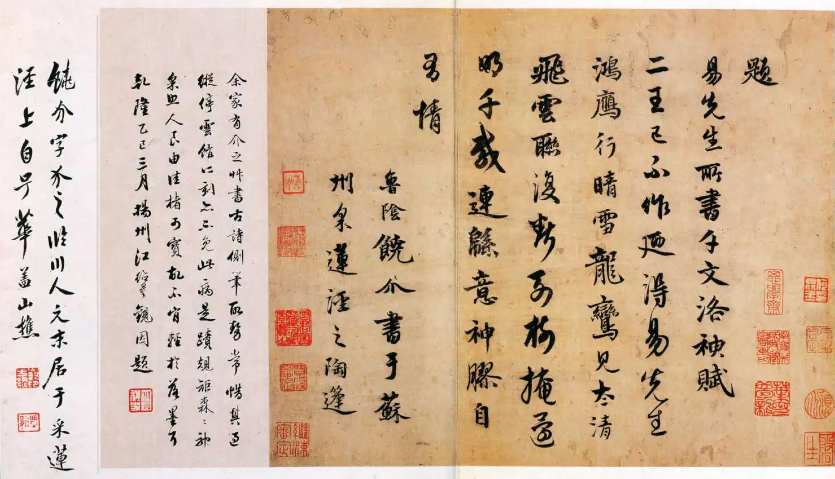 題
易先生所書千文洛神賦
二王已不作迺得易先生
鴻鴈行晴雪龍鸞見太清
飛雲聯復斷列 掩還
明千載連緜意神膠自
有情
魯陰饒介書于蘇
州采蓮涇之陶蓬
余家有介之艸書古詩側筆取勢常惜其過
縱停雲館所刻亦不免此病是蹟規矩森〻神
采照人良由佳楮可寶故不肯輕於落墨耳
乾隆乙巳三月揚州江德量觀因題
饒介字介之臨川人元末居于采蓮
涇上自号華蓋山樵